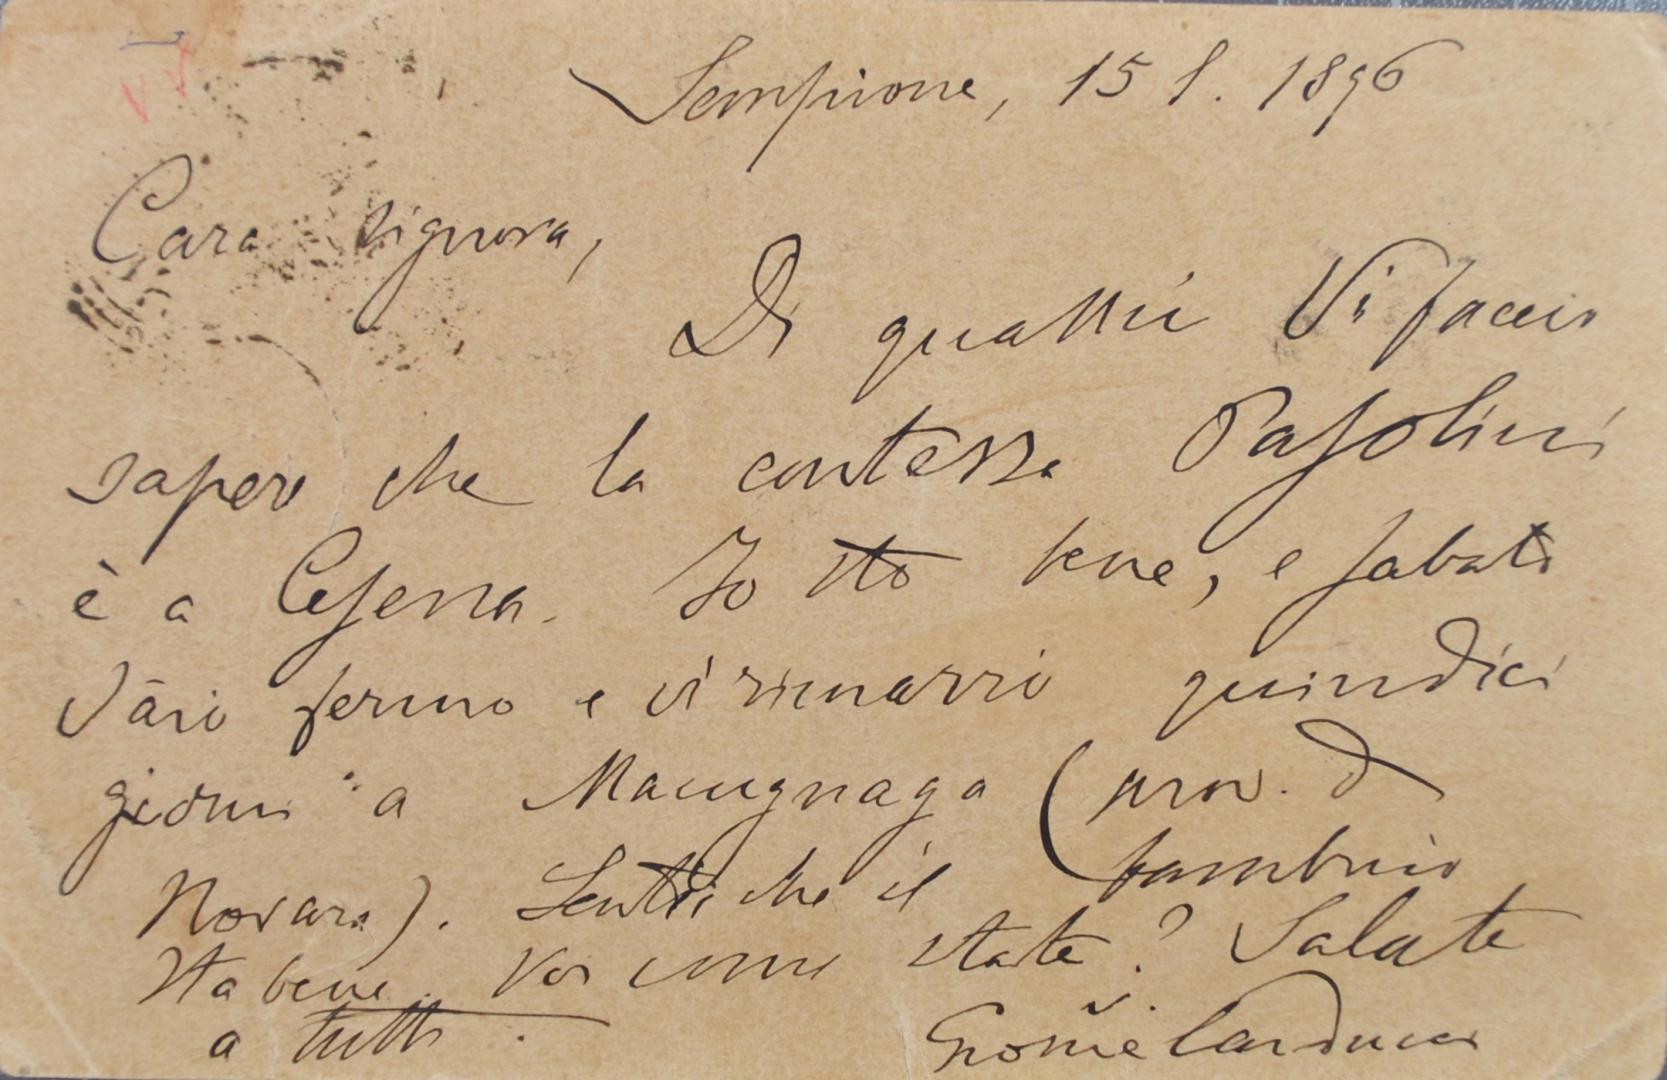 Sempione, 15 l. 1896
Cara signora,
Di quassù Vi faccio
sapere che la contessa Pasolini
è a Cesena. Io sto bene, e sabato
sarò fermo e vi rimarrò quindici
giorni a Macugnaga (prov. di
Novara). Sentii che il bambino
sta bene. Voi come state? Salute
a tutti.
Giosuè Carducci